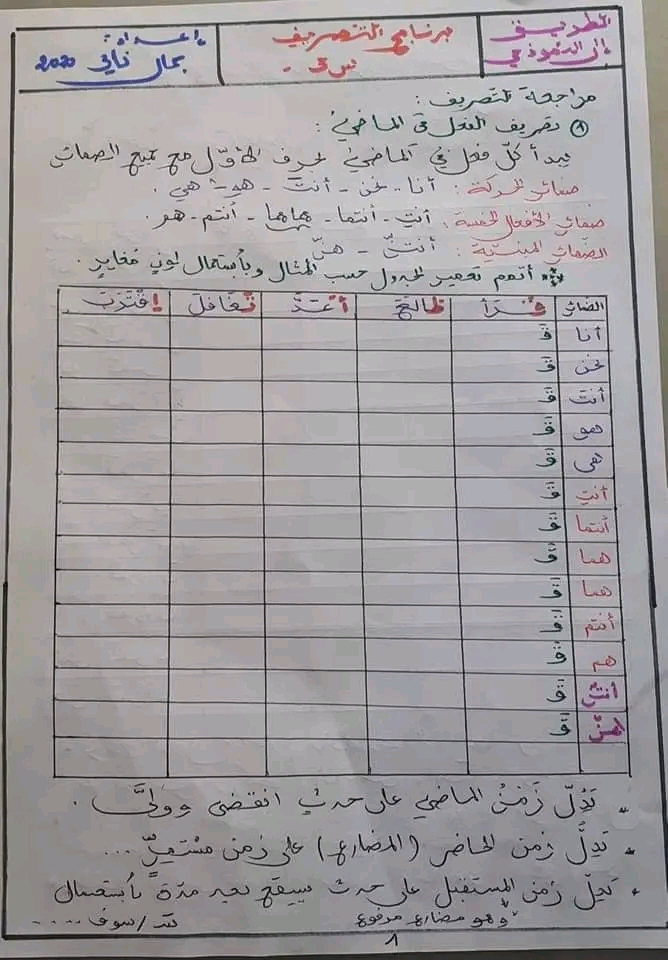 الطريق إلى النموذجي
برنامج التصريف
س 6.
إعداد:
جمال نابي 2020
مراجعة التصريف:
1) تصريف الفعل في الماضي:
يبدأ كلّ فعل في الماضي بحرف الأوّل مع جميع الضمائر
ضمائر الحركة: أنا - نحن - أنتَ - هو - هي.
ضمائر الأفعال الخمسة: أنتِ - أنتما - هما هما - أنتم - هم.
الضمائر المبنيّة: أنتنّ - هنّ
أتمم تعمير الجدول حسب المثال وبٱستعمال لون مُغاير.
الضمائر قَرَأَ طَالَعَ أَعَدَّ تَغَافَلَ اِقْتَرَبَ
أنا قَ
نحن قَ
أنتَ قَ
هو قَ
هي قَ
أنتِ قَ
أنتما قَ
هما قَ
هما قَ
أنتم قَ
هم قَ
أنتنّ قَ
هنّ قَ
* يَدُلّ زَمَنُ الماضي على حدث انقضى وولَّى.
* يَدُلُّ زمن الحاضر (المضارع) على زمن مُسْتمِرٍّ...
* يَدلّ زمن المستقبل على حدث سيقع بعد مدّة بٱستعمال
وهو مضارع مرفوع
سَـ / سوف .....
1